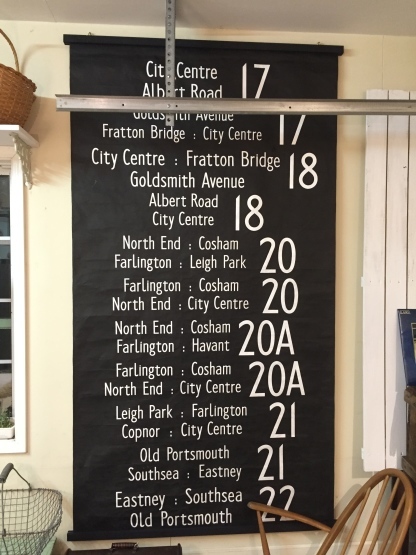 City Centre 17
Albert Road
Goldsmith Avenue 17
Fratton Bridge : City Centre
City Centre : Fratton Bridge 18
Goldsmith Avenue
Albert Road 18
City Centre
North End : Cosham 20
Farlington : Leigh Park
Farlington : Cosham 20
North End : City Centre
North End : Cosham 20A
Farlington : Havant
Farlington : Cosham 20A
North End : City Centre
Leigh Park : Farlington 21
Copnor : City Centre
Old Portsmouth 21
Southsea : Eastney
Eastney : Southsea 22
Old Portsmouth